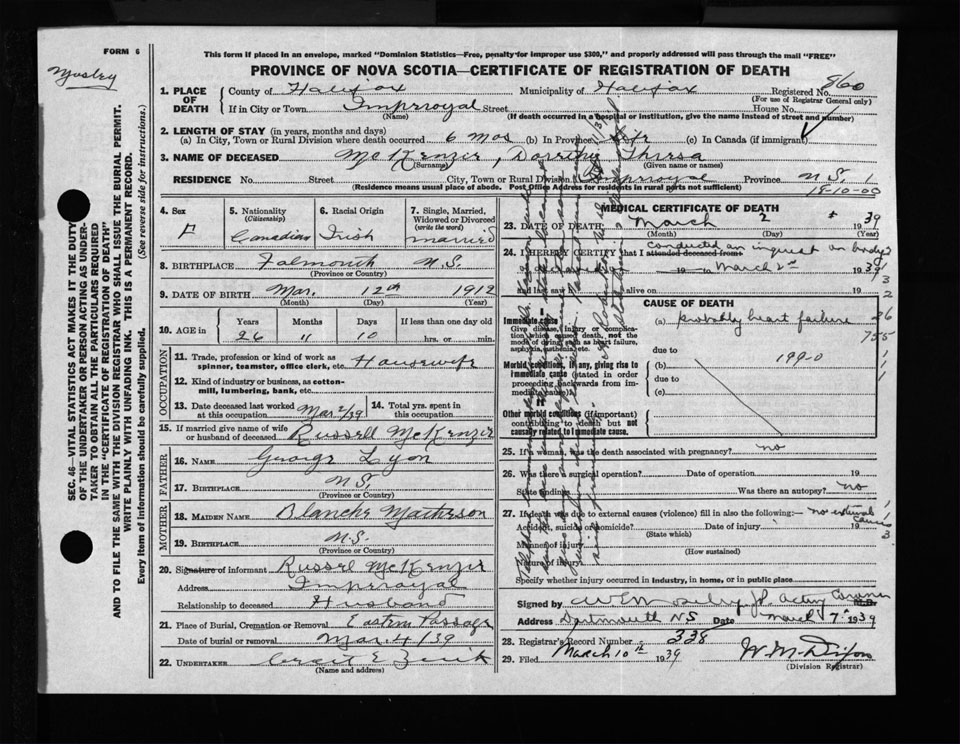 FORM 6
Mosley
This form if placed in an envelope, marked "Dominion Statistics—Free, penalty for improper use $300," and properly addressed will pass through the mail "FREE"
PROVINCE OF NOVA SCOTIA—CERTIFICATE OF REGISTRATION OF DEATH
860
1. PLACE OF DEATH County of Halifax Municipality of Halifax Registered No.
(For use of Registrar General only)
If in City or Town Imperoyal Street House No.
(Name) (If death occurred in a hospital or institution, give the name instead of street and number)
2. LENGTH OF STAY (in years, months and days)
(a) In City, Town or Rural Division where death occurred 6 mos (b) In Province life (c) In Canada (if immigrant)
3. NAME OF DECEASED McKenzie, Dorothy Theresa
(Surname) (Given name or names)
RESIDENCE No. Street City, Town or Rural Division Imperoyal Province N.S. 1
(Residence means usual place of abode. Post Office Address for residents in rural parts not sufficient)
18-10-00
4. Sex F
5. Nationality (Citizenship) Canadian
6. Racial Origin Irish
7. Single, Married, Widowed or Divorced (write the word) married
8. BIRTHPLACE Falmouth N.S.
(Province or Country)
9. DATE OF BIRTH Mar. 12th 1912
(Month) (Day) (Year)
10. AGE in Years Months Days If less than one day old
26 11 10 hrs. or min.
OCCUPATION
11. Trade, profession or kind of work as spinner, teamster, office clerk, etc. Housewife
12. Kind of industry or business, as cotton-mill, lumbering, bank, etc.
13. Date deceased last worked at this occupation Mar 2/39
14. Total yrs. spent in this occupation
15. If married give name of wife or husband of deceased Russell McKenzie
FATHER
16. NAME George Lyon
17. BIRTHPLACE N.S.
(Province or Country)
MOTHER
18. MAIDEN NAME Blanche Matheson
19. BIRTHPLACE N.S.
(Province or Country)
20. Signature of informant Russel McKenzie
Address Imperoyal
Relationship to deceased Husband
21. Place of Burial, Cremation or Removal Eastern Passage
Date of burial or removal Mar 4/39
22. UNDERTAKER
(Name and address)
MEDICAL CERTIFICATE OF DEATH
23. DATE OF DEATH March 2 1939
(Month) (Day) (Year)
24. I HEREBY CERTIFY that I attended deceased from conducted an inquest on body
March 2nd 1939
and last saw alive on 19
CAUSE OF DEATH
Immediate cause
Give disease, injury or complication which caused death, not the mode of dying such as heart failure, asphyxia, asthenia, etc.
(a) probably heart failure
Morbid conditions, if any, giving rise to immediate cause (stated in order proceeding backwards from immediate cause).
due to
(b) 199-0
due to
(c)
Other morbid conditions (if important) contributing to death but not causally related to immediate cause.
25. If a woman, was the death associated with pregnancy? no
26. Was there a surgical operation? Date of operation 19
State findings Was there an autopsy? no
27. If death was due to external causes (violence) fill in also the following:— no external causes
Accident, suicide or homicide? Date of injury 19
(State which)
Manner of injury
(How sustained)
Nature of injury
Specify whether injury occurred in industry, in home, or in public place
Signed by J.P. acting Coroner M.D.
Address Dartmouth NS Date March 7th 1939
28. Registrar's Record Number 338
29. Filed March 10th 1939 W. M. Dixon
(Division Registrar)
SEC. 46—VITAL STATISTICS ACT MAKES IT THE DUTY OF THE UNDERTAKER OR PERSON ACTING AS UNDERTAKER TO OBTAIN ALL THE PARTICULARS REQUIRED IN THE "CERTIFICATE OF REGISTRATION OF DEATH" AND TO FILE THE SAME WITH THE DIVISION REGISTRAR WHO SHALL ISSUE THE BURIAL PERMIT.
WRITE PLAINLY WITH UNFADING INK. THIS IS A PERMANENT RECORD.
Every item of information should be carefully supplied. (See reverse side for instructions.)